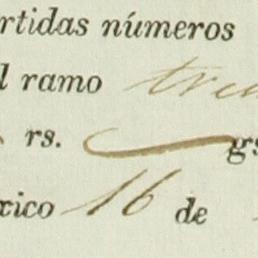 rtidas números
l ramo
rs. gs
xico 16 de